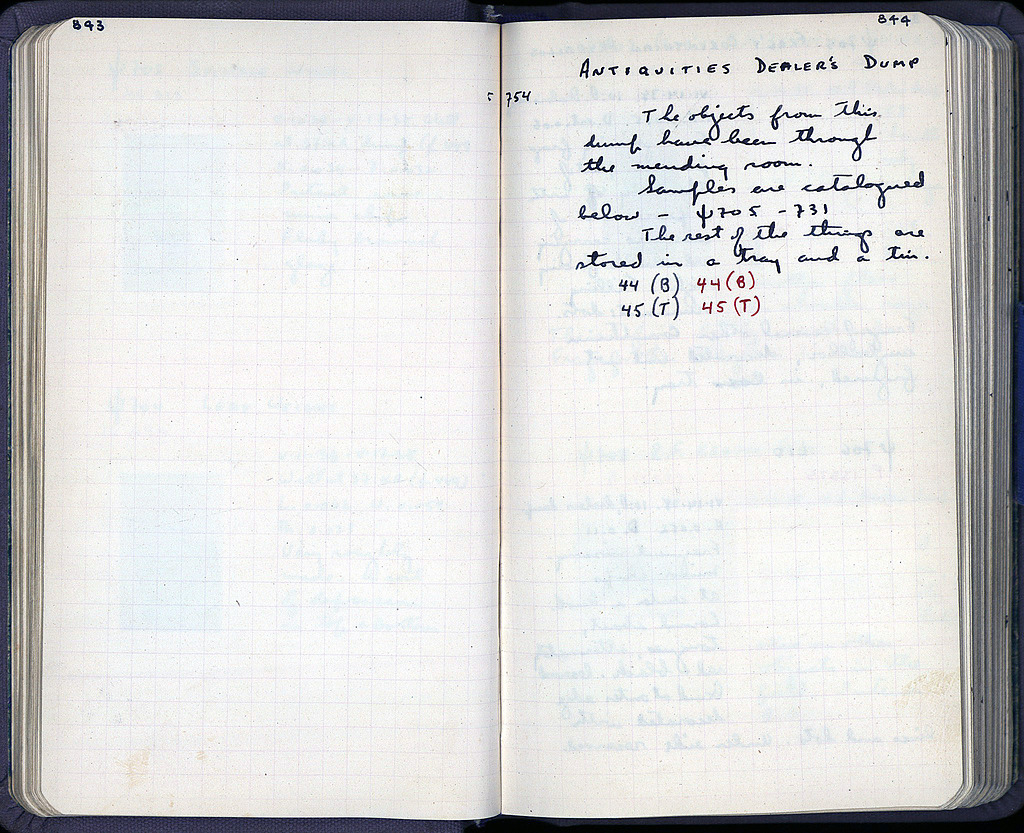 843
844
ANTIQUITIES DEALER'S DUMP
: 754
The objects from this
dump have been through
the mending room.
Samples are catalogued
below - ψ705 - 731
The rest of the things are
stored in a tray and a tin.
44 (B) 44 (B)
45 (T) 45 (T)